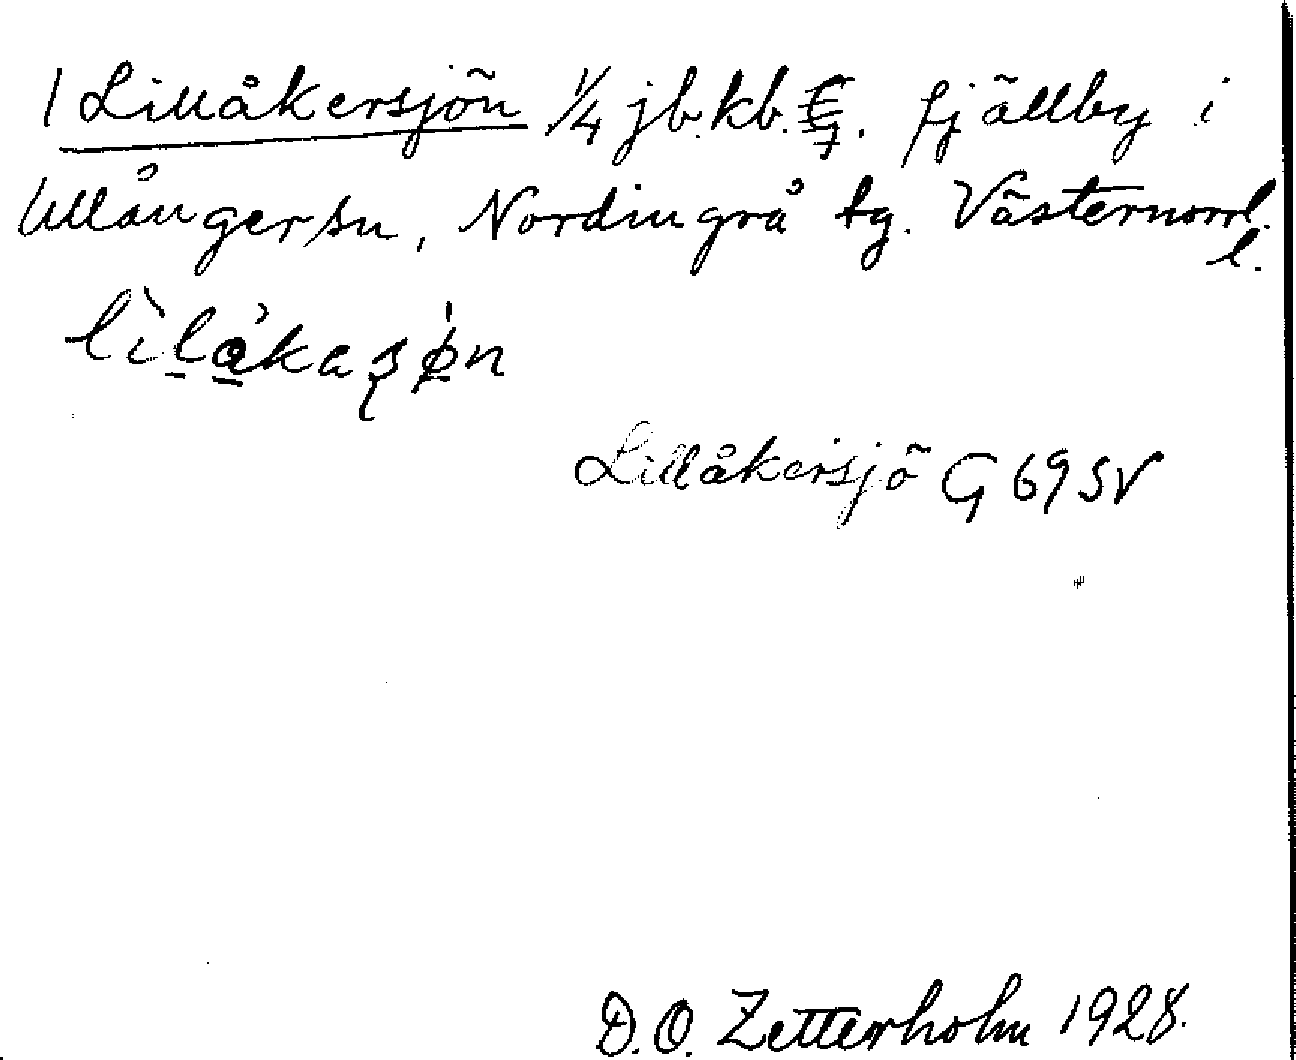 1 Lillåkersjön 1/4 jb. kb. fjällby i
Ullånger sn, Nordingrå tg. Västernorrl.
l.
Lillåkersjö G 69 SV
D. O. Zetterholm 1928.